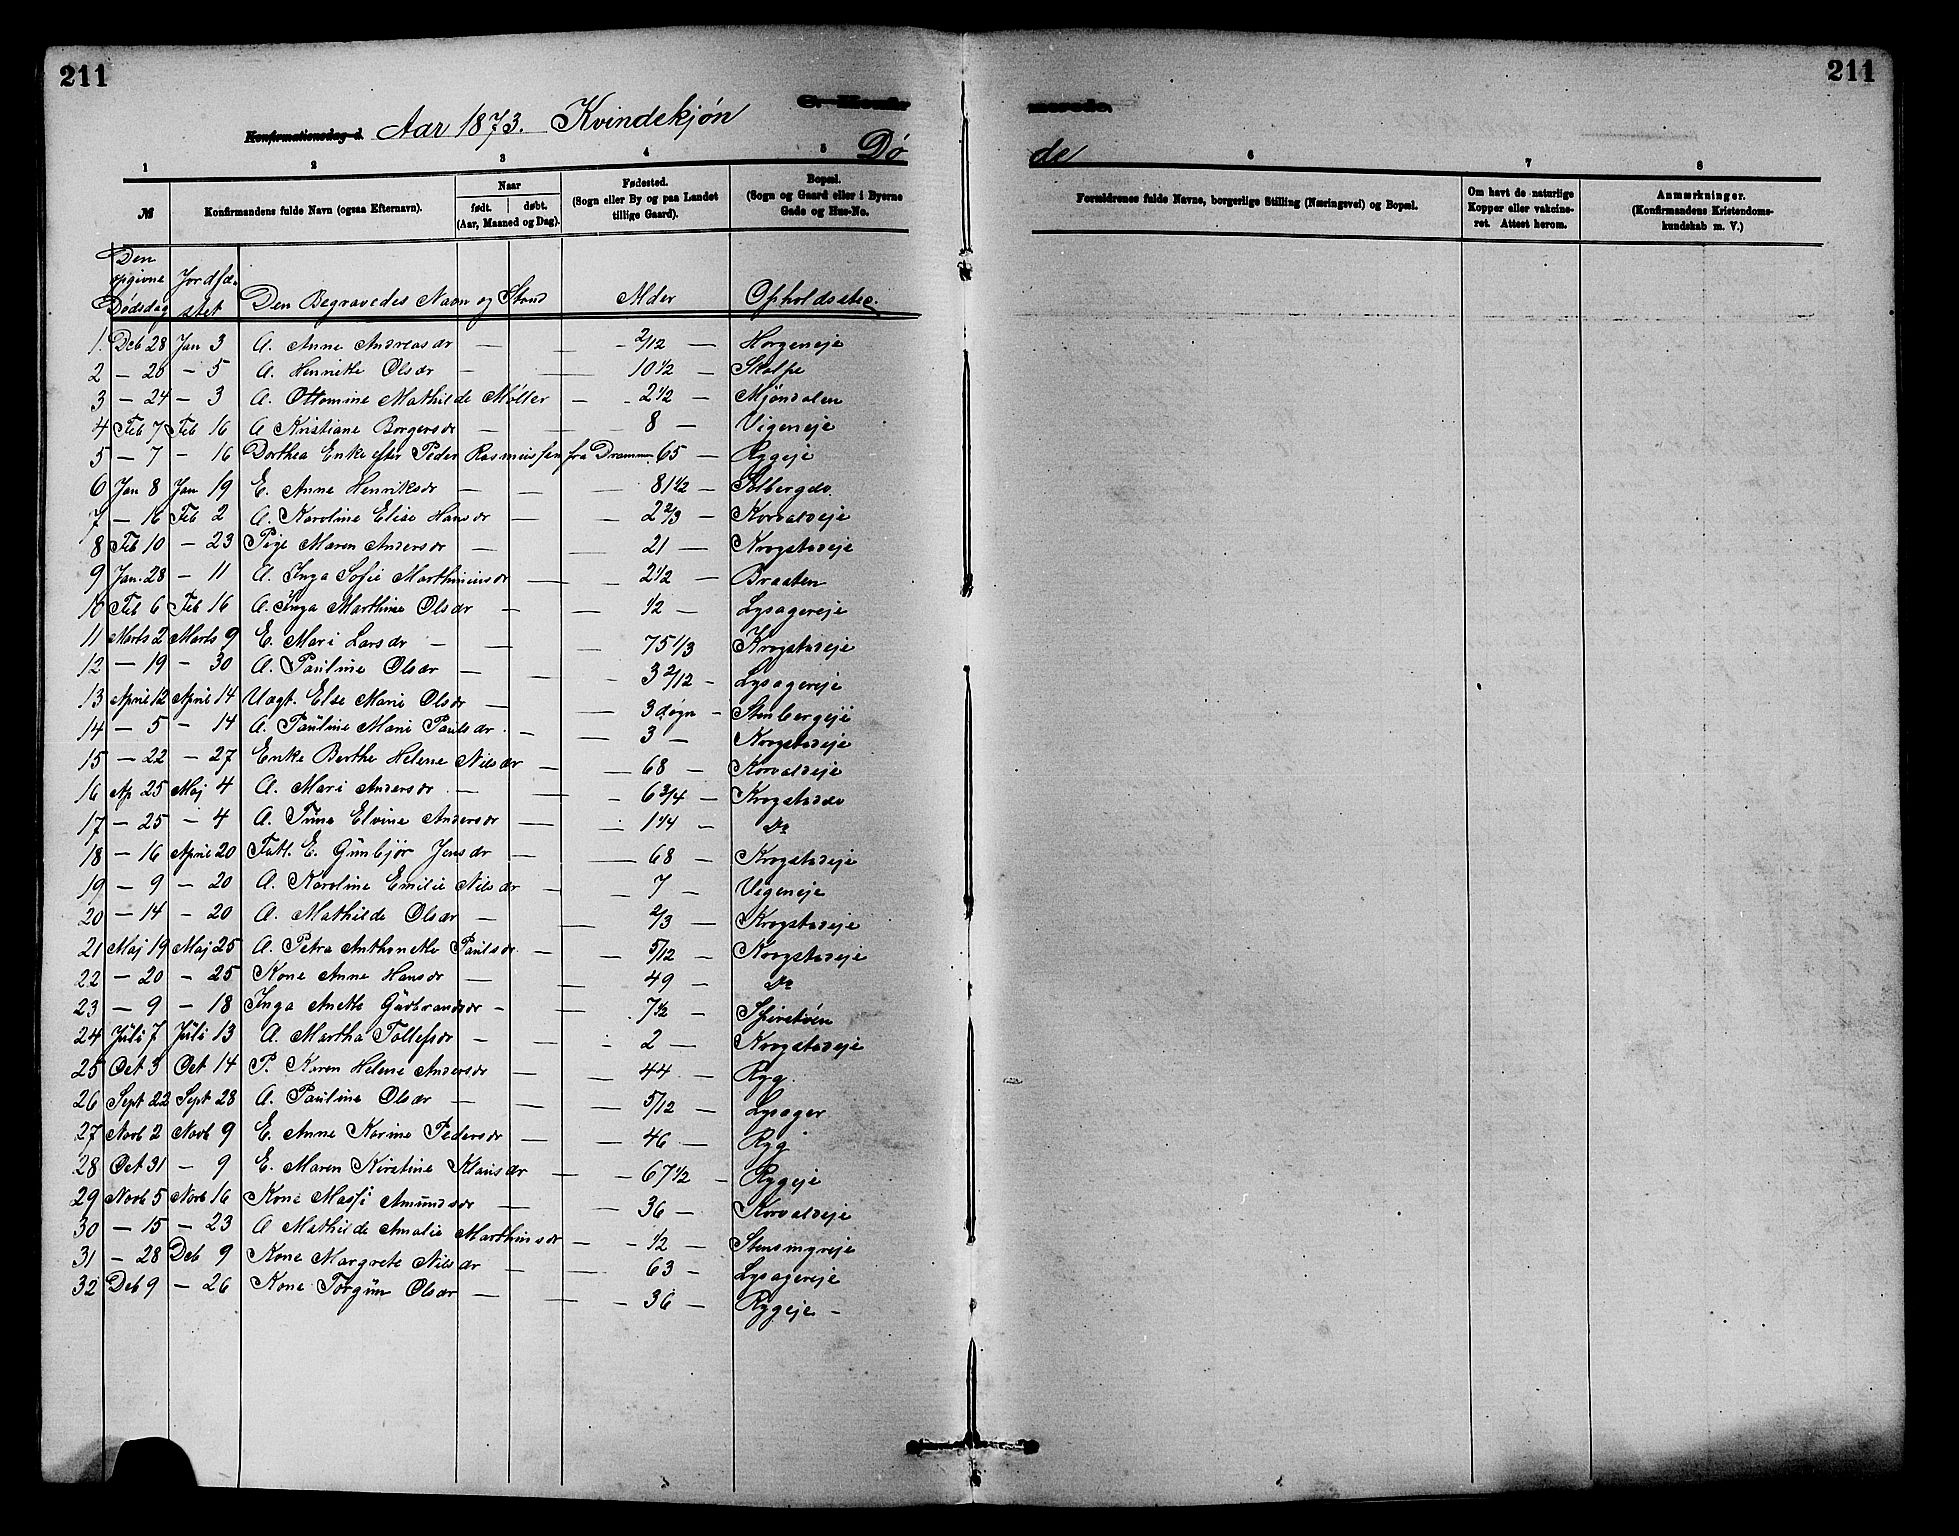 211
211
C. Konfir merede.
Konfirmationsdag d. Aar 1873. Kvindekjøn
Dø de
1 2 3 4 5 6 7 8
№ Konfirmandens fulde Navn (ogsaa Efternavn). Naar født. døbt. (Aar, Maaned og Dag). Fødested. (Sogn eller By og paa Landet tillige Gaard). Bopæl. (Sogn og Gaard eller i Byerne Gade og Hus-No. Forældrenes fulde Navne, borgerlige Stilling (Næringsvei) og Bopæl. Om havt de naturlige Kopper eller vakcineret. Attest herom. Anmærkninger. (Konfirmandens Kristendomskundskab m. V.)
Den opgivne Dødsdag Jordfæstet Den Begravedes Navn og Stand Alder Opholdssted.
1 Deb 28 Jan 3 A. Anne Andreasdr — — 2/12 — Horgeneje
2 — 20 — 5 A. Henriette Olsdr — — 10 1/2 — Skalpe
3 — 24 — 3 A. Ottomine Mathilde Møller — 2 1/2 — Mjøndalen
4 Feb 7 Feb 16 A Kristiane Borgersdr — — 8 — Vigeneje
5 — 7 — 16 Dorthea Enke efter Peder Rasmussen fra Drammn 65 — Rygeje
6 Jan 8 Jan 19 E. Anne Henriksdr — — 81 1/2 — Solbergdo.
7 — 16 Feb 2 A. Karoline Elise Hansdr — — 2 2/3 — Korvaldeje
8 Feb 10 — 23 Pige Maren Andersdr — — 21 — Krogstadeje
9 Jan. 28 — 11 A. Inga Sofie Marthiniusdr — — 2 1/2 — Braaten
10 Feb 6 Feb 16 A. Inga Marthine Olsdr — — 1/2 — Lysagereje
11 Marts 2 Marts 9 E. Mari Larsdr — — — 75 1/3 Krogstadeje
12 — 19 — 30 A. Pauline Olsdr — — — 3 2/12 — Lysagereje
13 April 12 April 14 Uægt. Else Marie Olsdr — — 3 døgn — Stenbergeje
14 — 5 — 14 A. Pauline Marie Paulsdr. — — 3 — Krogstadeje
15 — 22 — 27 Enke Berthe Helene Nilsdr — — 68 — Korvaldeje
16 Ap 25 Maj 4 A. Mari Andersdr. — — — 6 3/4 — Krogstaddo
17 — 25 — 4 A. Tina Elvine Andersdr — — 1 1/4 — Do
18 — 16 April 20 Fatt. E. Gunbjør Jensdr — — 68 — Krogstadeje
19 — 9 — 20 A. Karoline Emilie Nilsdr — — 7 — Vigeneje
20 — 14 — 20 A. Mathilde Olsdr — — 2/3 — Krogstadeje
21 Maj 19 Maj 25 A. Petra Anthonette Paulsdr. — — 5/12 — Krogstadeje
22 — 20 — 25 Kone Anne Hansdr — — 49 — Do
23 — 9 — 18 Inga Anette Gudbrandsdr — — 7 1/2 — Spiretøen
24 Juli 7 Juli 13 A. Martha Tollefsdr — — — 2 — Krogstadeje
25 Oct 3 Oct 14 P. Karen Helene Andersdr — — 44 — Ryg.
26 Sept 22 Sept 28 A. Pauline Olsdr — — — 5/12 — Lysager
27 Novb 2 Novb 9 E. Anne Karine Pedersdr — — 46 — Ryg
28 Oct 31 — 9 E. Maren Kirstine Klausdr — — 67 1/2 — Rygeje
29 Novb 5 Novb 16 Kone Massi Amundsdr — — — 36 — Korvaldeje
30 — 15 — 23 A Mathilde Amalie Marthinsdr — — 1/2 — Stensingreje
31 — 28 Deb 9 Kone Margrete Nilsdr — — 63 — Lysagereje
32 Deb 9 — 26 Kone Torgun Olsdr — — — 36 — Rygeje —